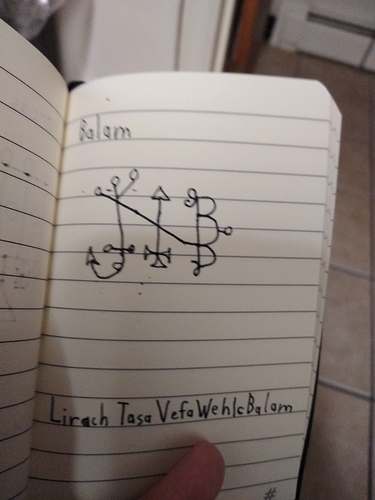 Balam
Lirach Tasa Vefa WehlcBalam
#